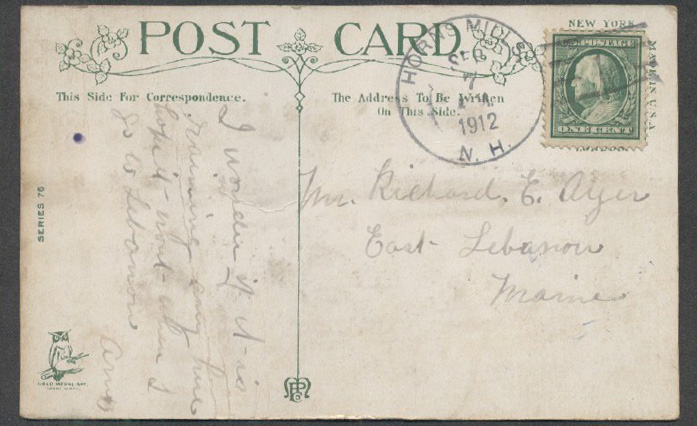 POST CARD
This Side For Correspondence.
The Address To Be Written
On This Side.
NEW YORK
MADE IN U.S.A.
HORNS MILLS
SEP
7
1912
N. H.
ONE CENT
Mr. Richard. E. Ayer
East Lebanon
Maine
I wonder if it is
raining any
hope it wont when I
go to Lebanon
SERIES 76
GOLD MEDAL ART